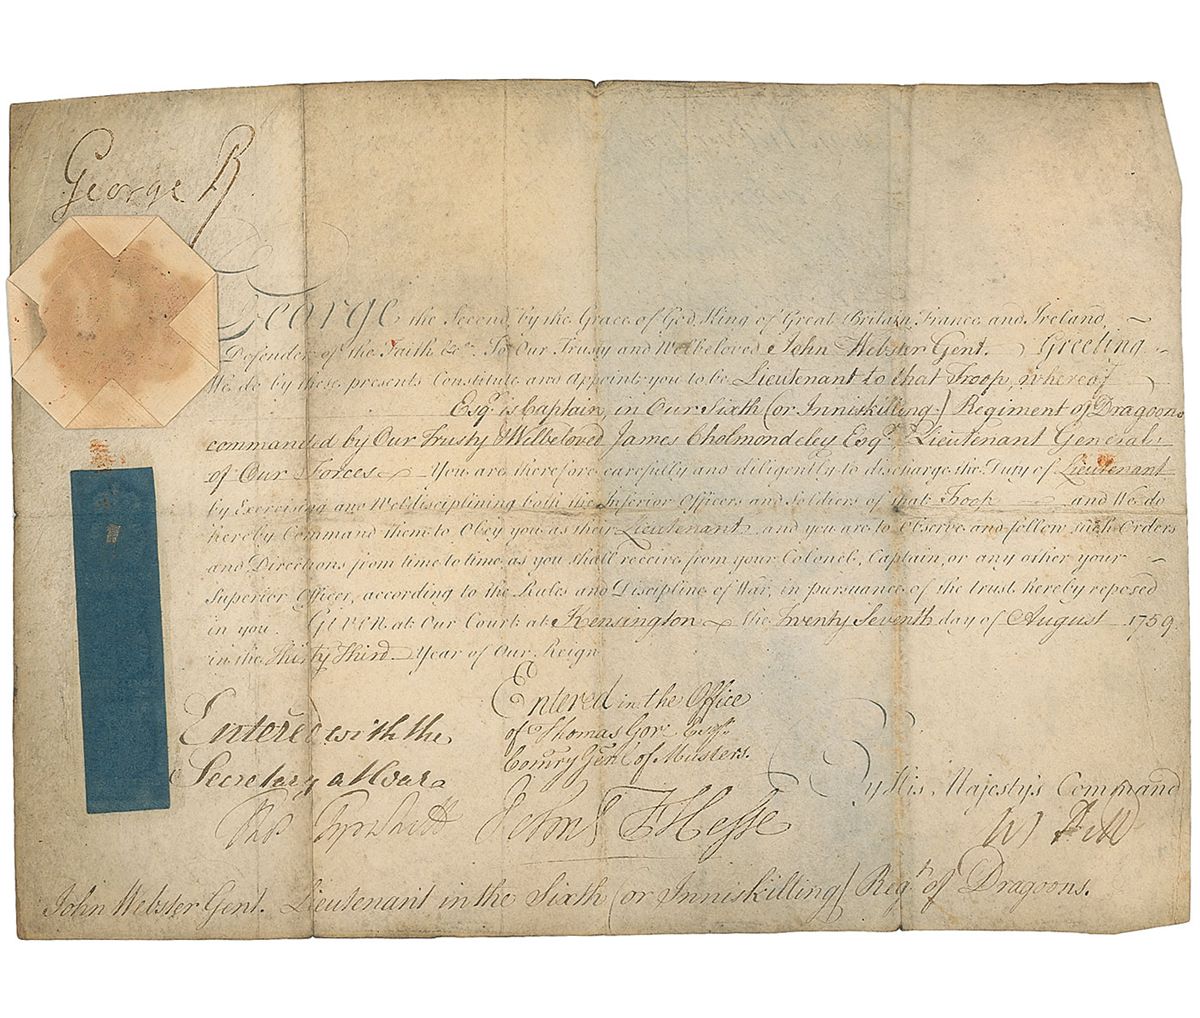 George R
George the Second, by the Grace of God, King of Great Britain, France and Ireland,
Defender of the Faith &c. To Our Trusty and Welbeloved John Webster Gent. Greeting
We do by these presents Constitute and Appoint you to be Lieutenant to that Troop, whereof
Esqr. is Captain, in Our Sixth (or Inniskilling) Regiment of Dragoons
commanded by Our Trusty & Welbeloved James Cholmondeley Esqr. Lieutenant General
of Our Forces You are therefore carefully and diligently to discharge the Duty of Lieutenant
by Exercising and Weldisciplining both the Inferior Officers and Soldiers of that Troop and We do
hereby Command them to Obey you as their Lieutenant and you are to Observe and follow such Orders
and Directions from time to time, as you shall receive from your Colonel, Captain, or any other your
Superior Officer, according to the Rules and Discipline of War, in pursuance of the trust hereby reposed
in you. GIVEN at Our Court at Kensington the Twenty Seventh day of August 1759
in the Thirty Third Year of Our Reign
Entered with the
Secretary at War
Entered in the Office
of Thomas Gore Esqr.
Comry Genl. of Musters.
By His Majesty's Command
Hesse
W Pitt
John Webster Gent. Lieutenant in the Sixth (or Inniskilling) Regt. of Dragoons.